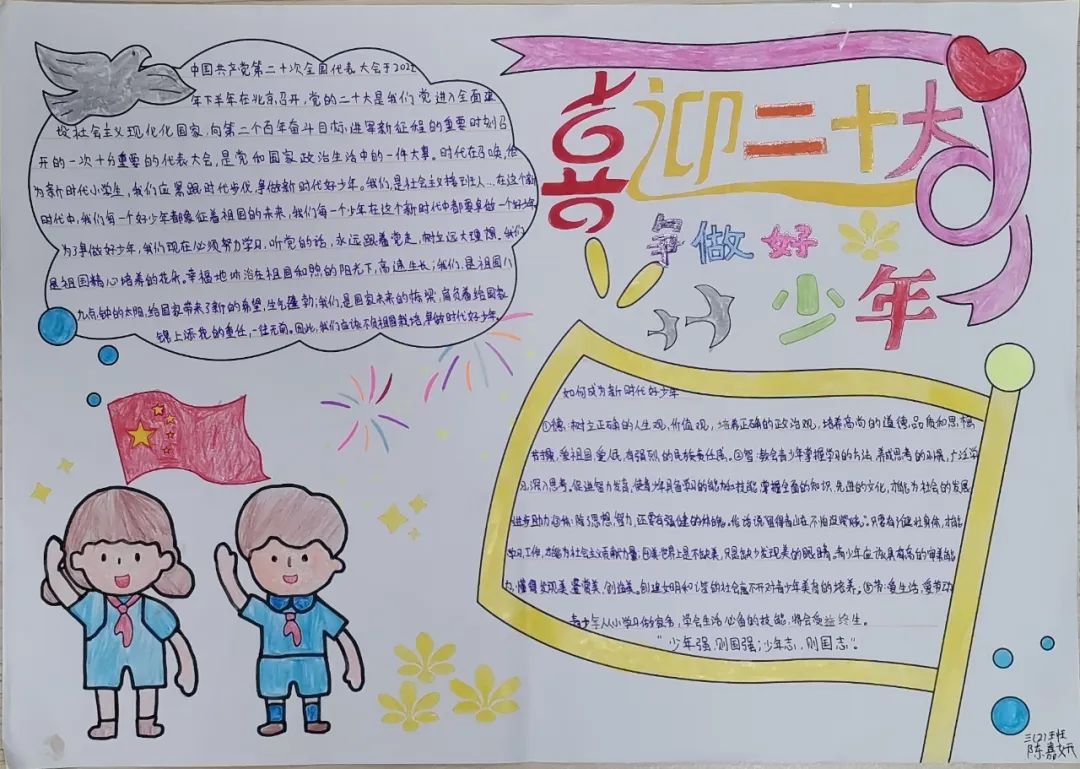 中国共产党第二十次全国代表大会于2022
年下半年在北京召开，党的二十大是我们党进入全面建
设社会主义现代化国家，向第二个百年奋斗目标，进军新征程的重要时刻召
开的一次十分重要的代表大会，是党和国家政治生活中的一件大事。时代在召唤，作
为新时代小学生，我们应紧跟时代步伐，争做新时代好少年。我们是社会主义接班人…在这个新
时代中，我们每一个好少年都象征着祖国的未来，我们每一个少年在这个新时代中都要争做一个好少年
为了争做好少年，我们现在必须努力学习，听党的话，永远跟着党走，树立远大理想。我们
是祖国精心培养的花朵。幸福地沐浴在祖国和煦的阳光下，高速生长；我们，是祖国八
九点钟的太阳，给国家带来了新的希望，生气蓬勃；我们，是国家未来的栋梁，肩负着给国家
锦上添花的重任，一往无前。因此，我们应该不负祖国栽培，争做时代好少年
喜迎二十大
争做好
少年
如何成为新时代好少年
①德：树立正确的人生观，价值观，培养正确的政治观，培养高尚的道德，品质和思想
情操，爱祖国，爱人民，有强烈的民族责任感。②智：教会青少年掌握学习的方法，养成思考的习惯，广泛学
习，深入思考。促进智力发育，使青少年具备学习的能力和技能，掌握全面的知识，先进的文化，才能为社会的发展
进步助力③体：除了思想，智力，还要有强健的体魄。俗话说"留得青山在不怕没柴烧"。只要有了健壮身体，才能
学习，工作，才能为社会主义贡献力量；④美：世界上是不缺美，只是缺少发现美的眼睛。青少年应该具有高的审美能
力，懂得发现美，鉴赏美，创造美。创建文明和谐的社会离不开对青少年美育的培养。⑤劳：爱生活，爱劳动
青少年从小学习做家务，学会生活必备的技能，将会受益终生。
"少年强，则国强；少年志，则国志"。
三（2）班
陈嘉妍